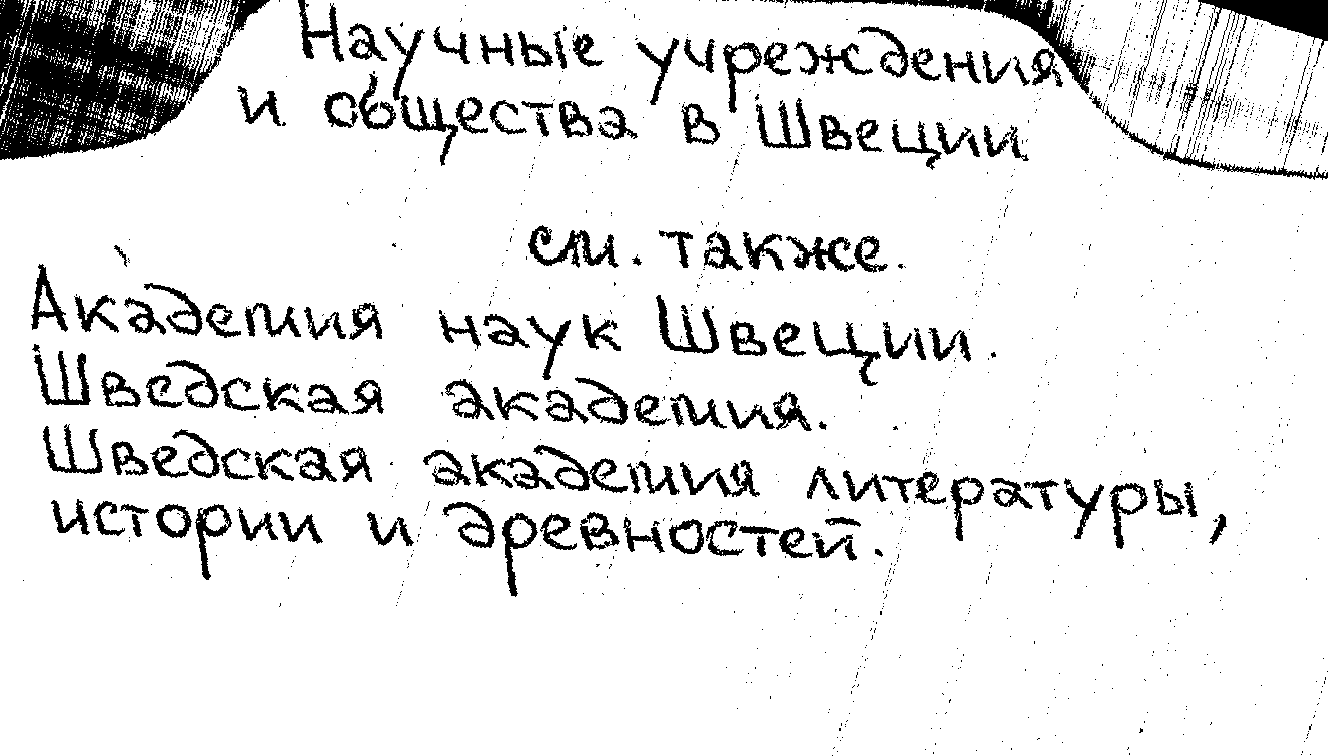 Научные учреждения
и общества в Швеции
см. также.
Академия наук Швеции.
Шведская академия.
Шведская академия литературы,
истории и древностей.